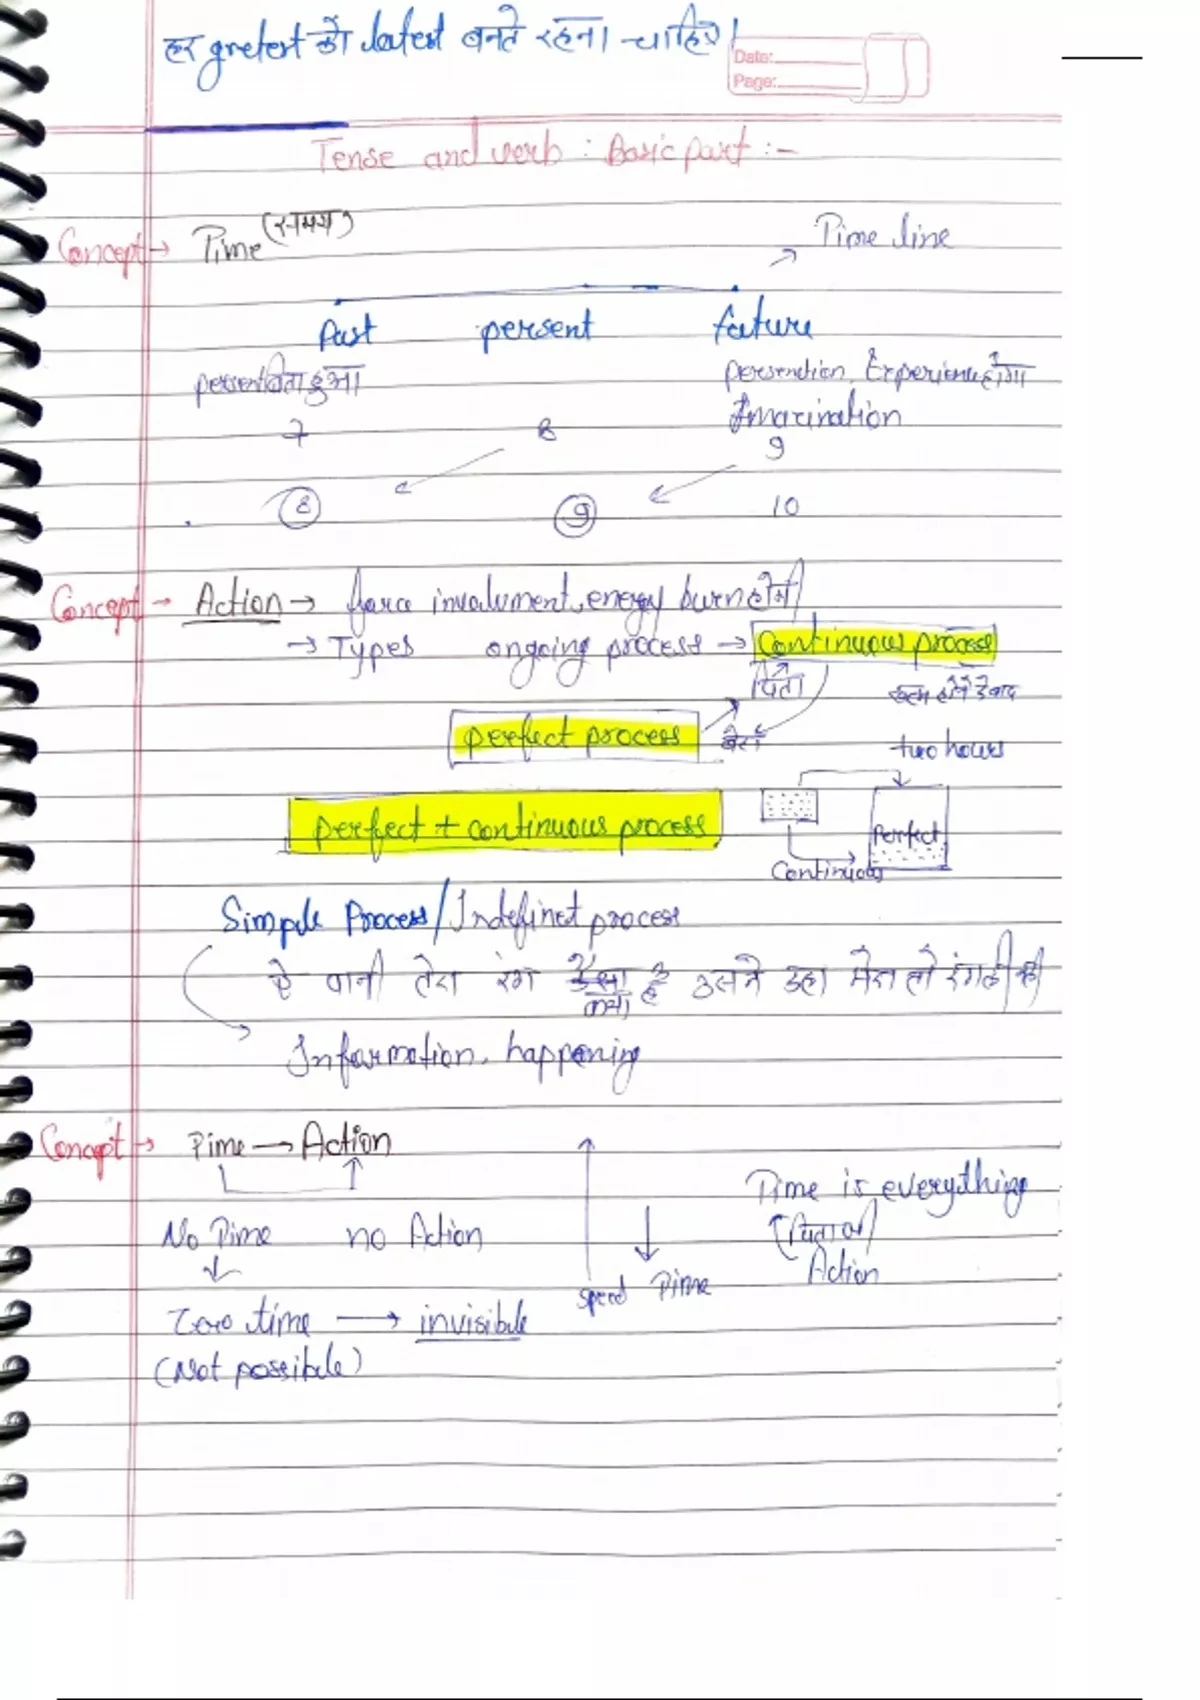 हर gretest को latest बनते रहना चाहिए।
Date:
Page:
Tense and verb : Basic part :-
Concept → Time (समय)
Time line
Past persent feature
persent बिता हुआ
Experience होगा
Imagination
7 8 9
8 9 10
Concept → Action → force involument, energy burn होगी
→ Types ongoing process → Continuous process
पिता
खत्म होने के बाद
perfect process बेटा
two hours
perfect + continuous process
Perfect
Continuous
Simple Process / Indefinet process
ऐ पानी तेरा रंग कैसा है उसने कहा मेरा तो रंग ही नही
क्या
Information, happening
Concept → Time → Action
Time is everything
No Time no Action
(पिता of)
Action
speed Time
Zero time → invisible
(Not possible)